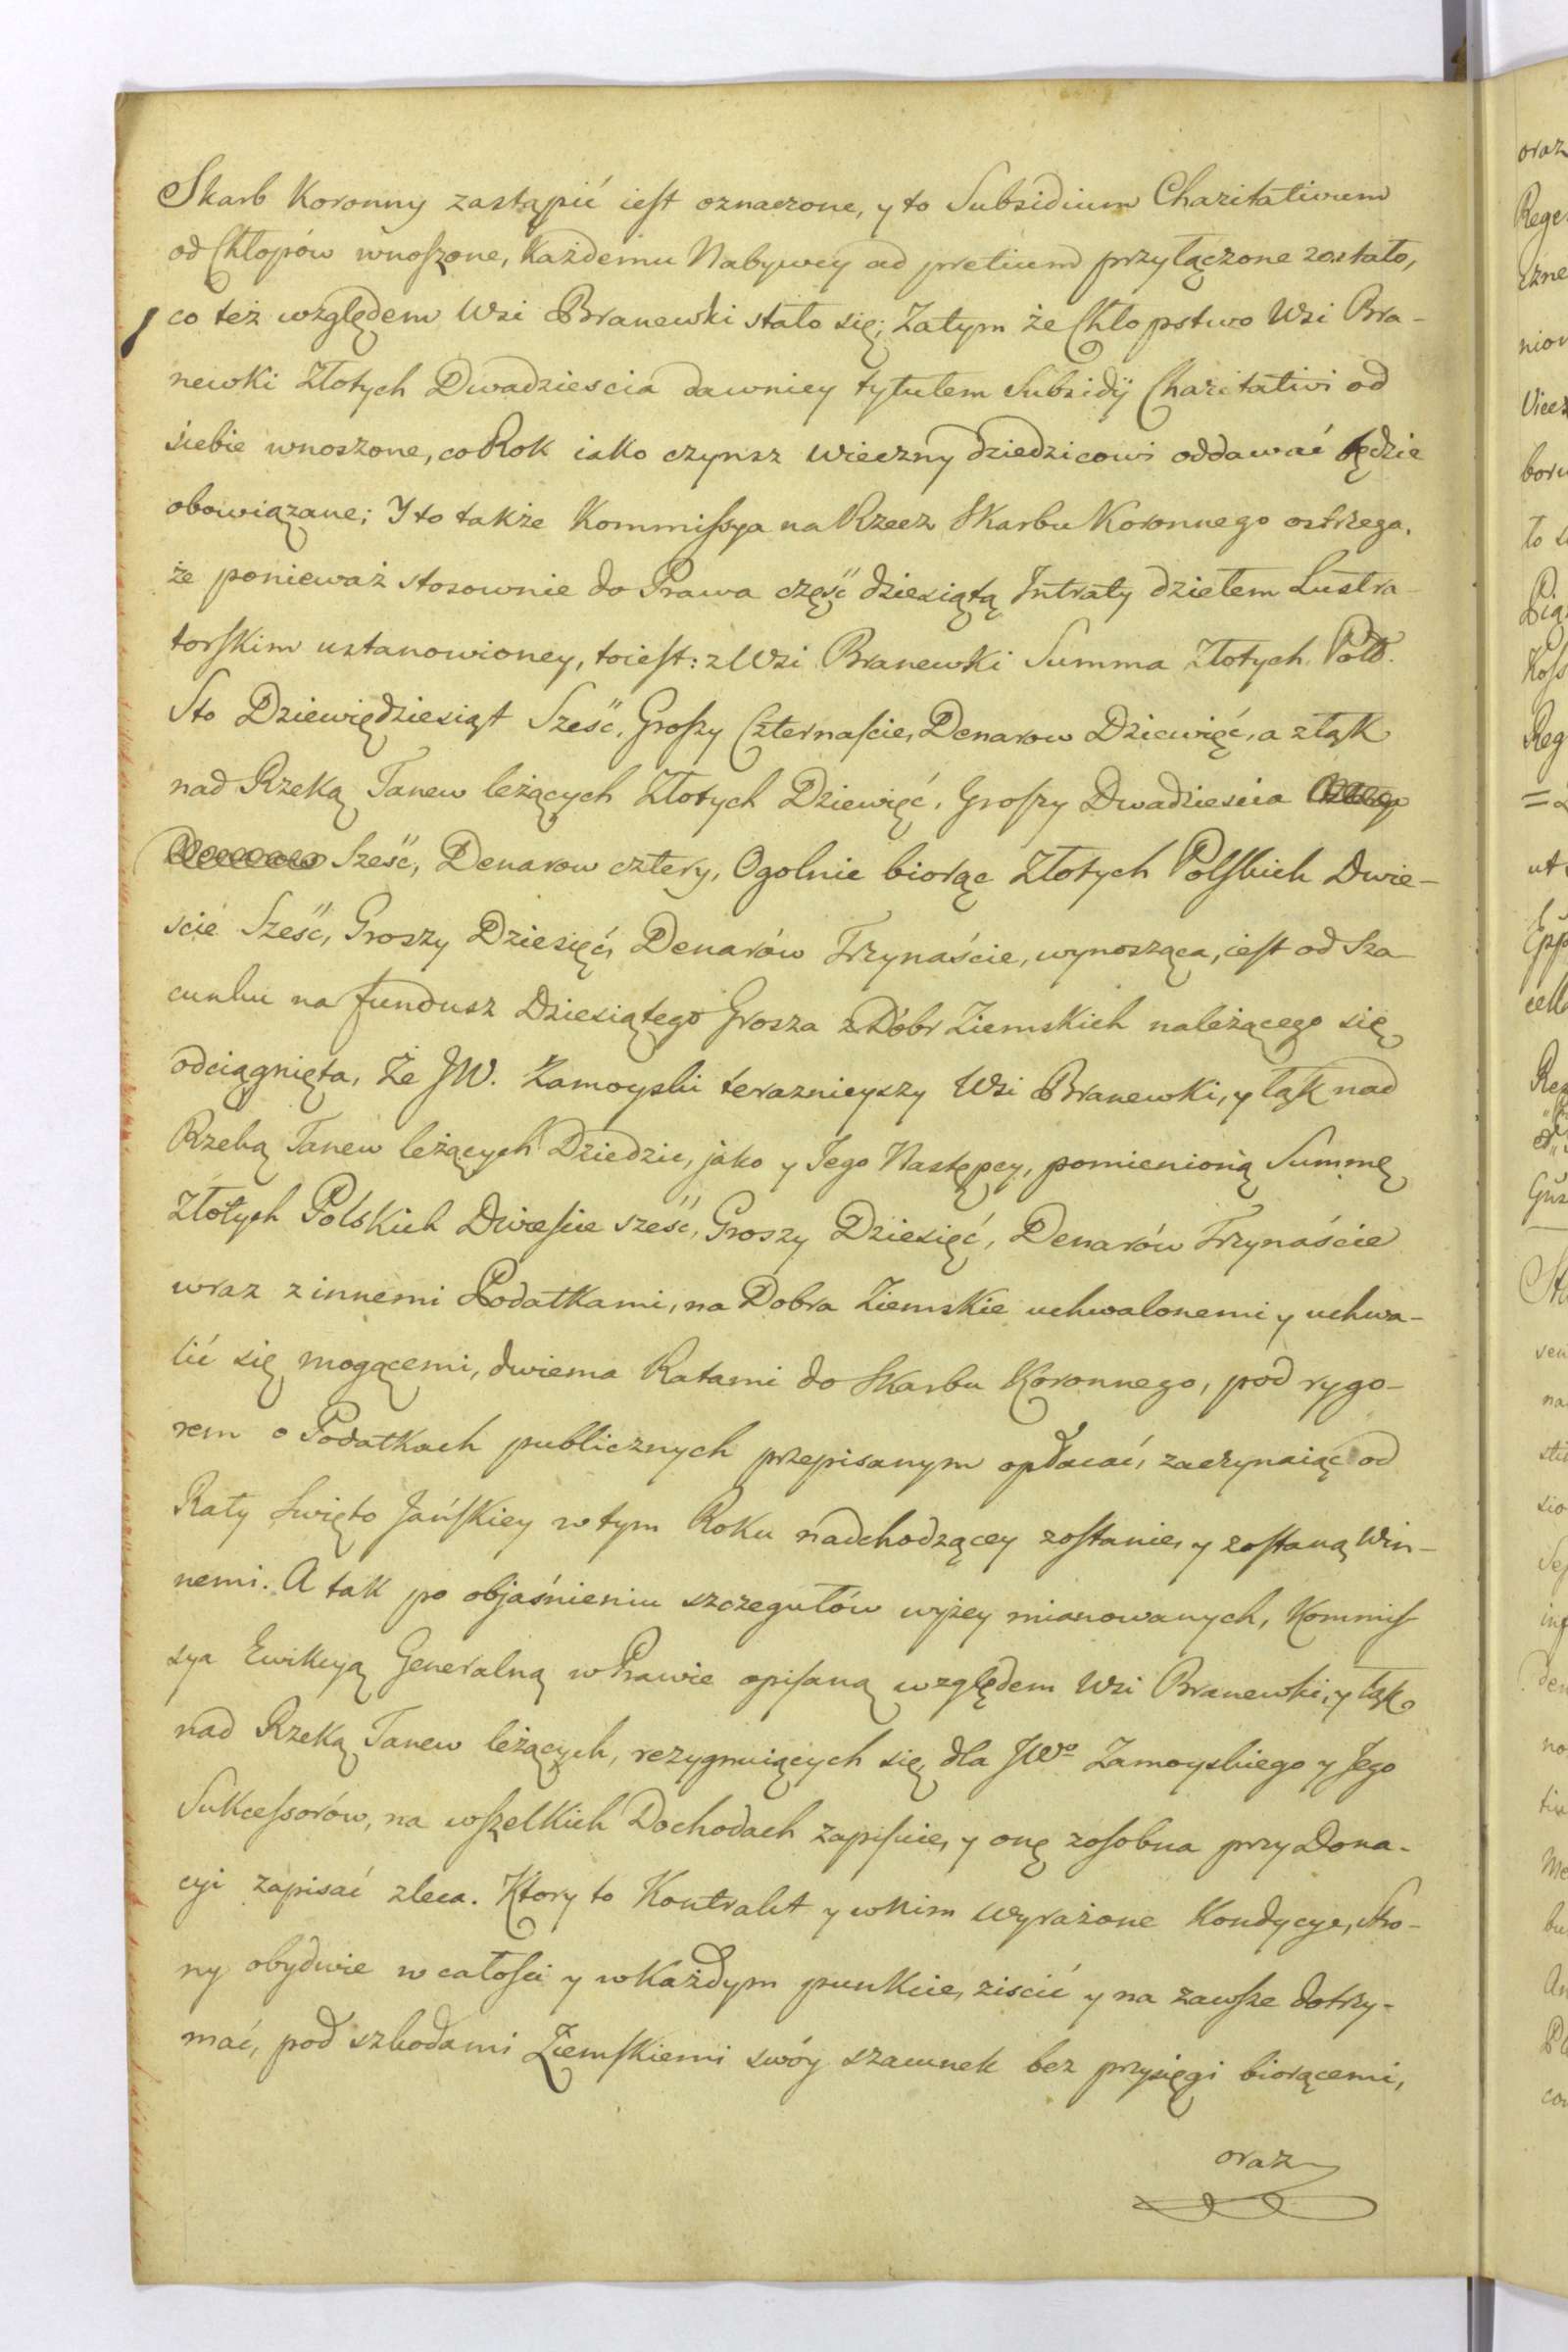 Skarb Koronny zastąpić iest oznaczone, y to Subsidium Charitativum
od Chłopów wnoszone, Każdemu Nabywcy ad pretium przyłączone zostało,
co też względem Wsi Branewki stało się; Zatym że Chłopstwo Wsi Bra-
newki Złotych Dwadziescia dawniey tytułem Subsidij Charitativi od
siebie wnoszone, co Rok iako czynsz wieczny dziedzicowi oddawać będzie
obowiązane; Y to także Kommissya na Rzecz Skarbu Koronnego ostrzega,
że ponieważ stosownie do Prawa część dziesiątą Intraty dziełem Lustra-
torskim ustanowioney, toiest: z Wsi Branewki Summa Złotych Pols.
Sto Dziewiędziesiąt Sześć, Groszy Czternaście, Denarow Dziewięć, a z łąk
nad Rzeką Tanew leżących Złotych Dziewięć, Groszy Dwadziescia
Sześć, Denarow cztery, Ogolnie biorąc Złotych Polskich Dwie-
scie Sześć, Groszy Dziesięć, Denarów Trzynaście, wynosząca, iest od Sza-
cunku na fundusz Dziesiątego Grosza z Dóbr Ziemskich należącego się
odciągnięta, Że JW. Zamoyski teraznieyszy Wsi Branewki, y łąk nad
Rzeką Tanew leżących Dziedzic, jako y Jego Następcy, pomienioną Summę
Złotych Polskich Dwieście sześć, Groszy Dziesięć, Denarów Trzynaście
wraz z innemi Podatkami, na Dobra Ziemskie uchwalonemi y uchwa-
lić się mogącemi, dwiema Ratami do Skarbu Koronnego, pod rygo-
rem o Podatkach publicznych przepisanym opłacać, zaczynaiąc od
Raty Swięto Jańskiey w tym Roku nadchodzącey zostanie, y zostaną win-
nemi. A tak po objaśnieniu szczegułów wyżey mianowanych, Kommis-
sya Ewikcyą Generalną w Prawie opisaną względem Wsi Branewki, y łąk
nad Rzeką Tanew leżących, rezygnuiących się dla JWo Zamoyskiego y Jego
Sukcessorów, na wszelkich Dochodach zapisuie, y onę zosobna przy Dona-
cyi zapisać zleca. Ktory to Kontrakt y w nim wyrażone Kondycye, Stro-
ny obydwie w całosci y w Każdym punkcie, ziscić y na zawsze dotrzy-
mać, pod szkodami Ziemskiemi swóy szacunek bez przysięgi biorącemi,
oraz